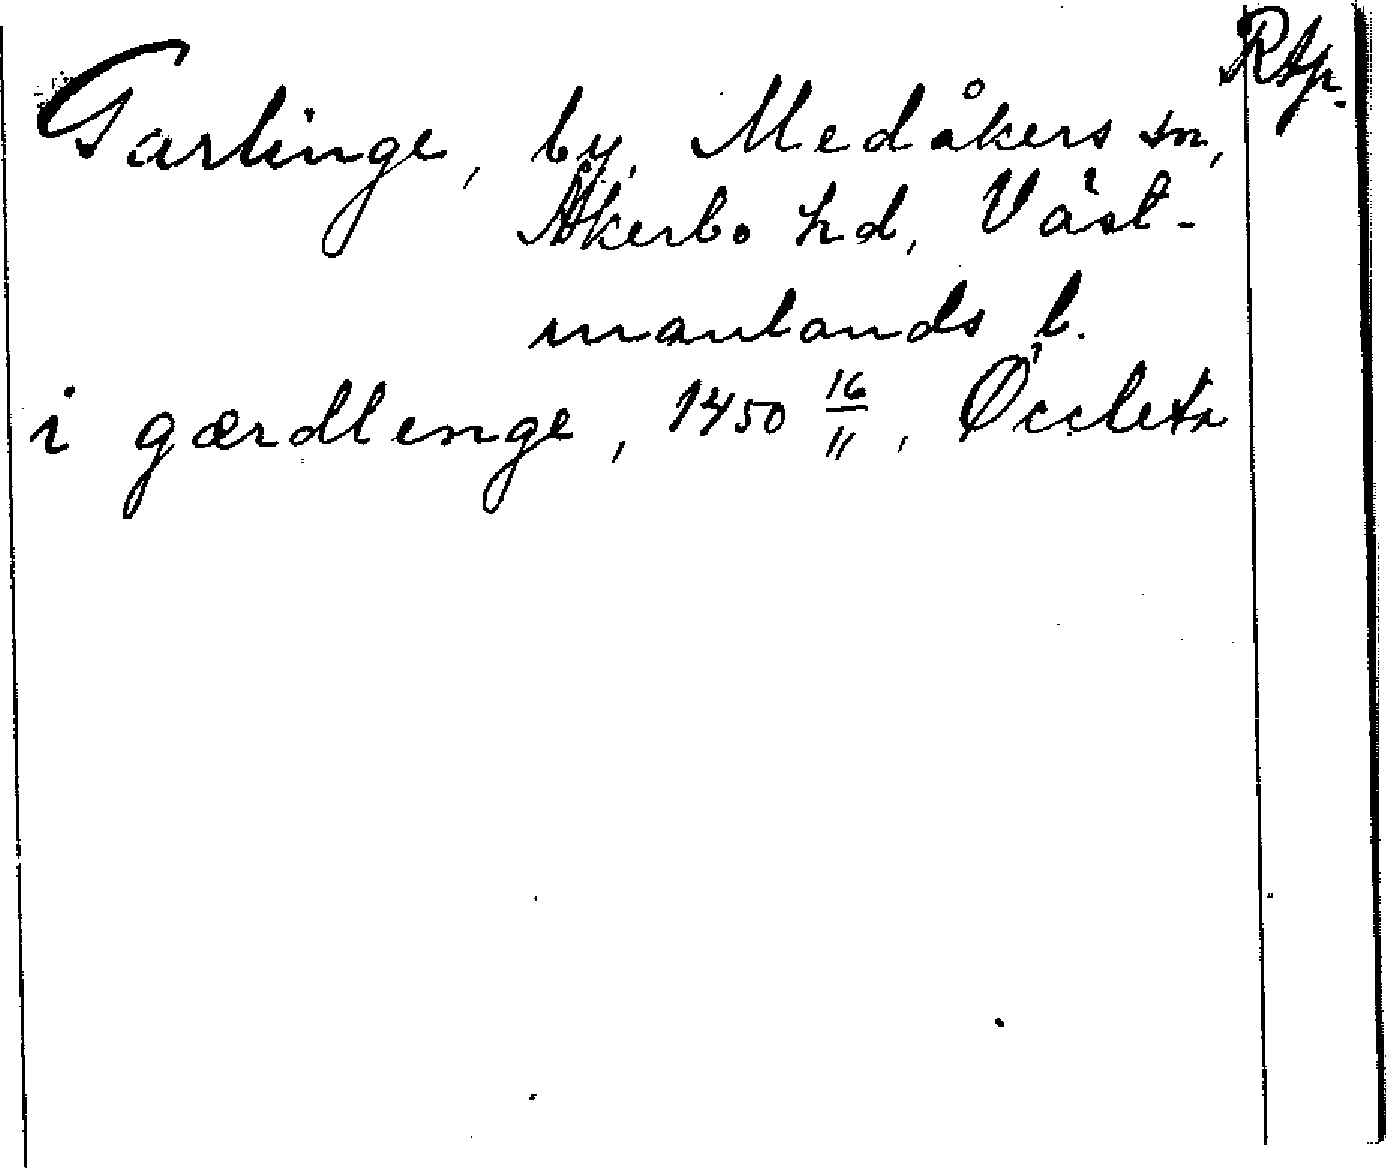 RAp.
Garlinge, by, Medåkers sn,
Åkerbo hd, Väst-
manlands l.
i gærdlenge, 1450 16/11, Øccleta